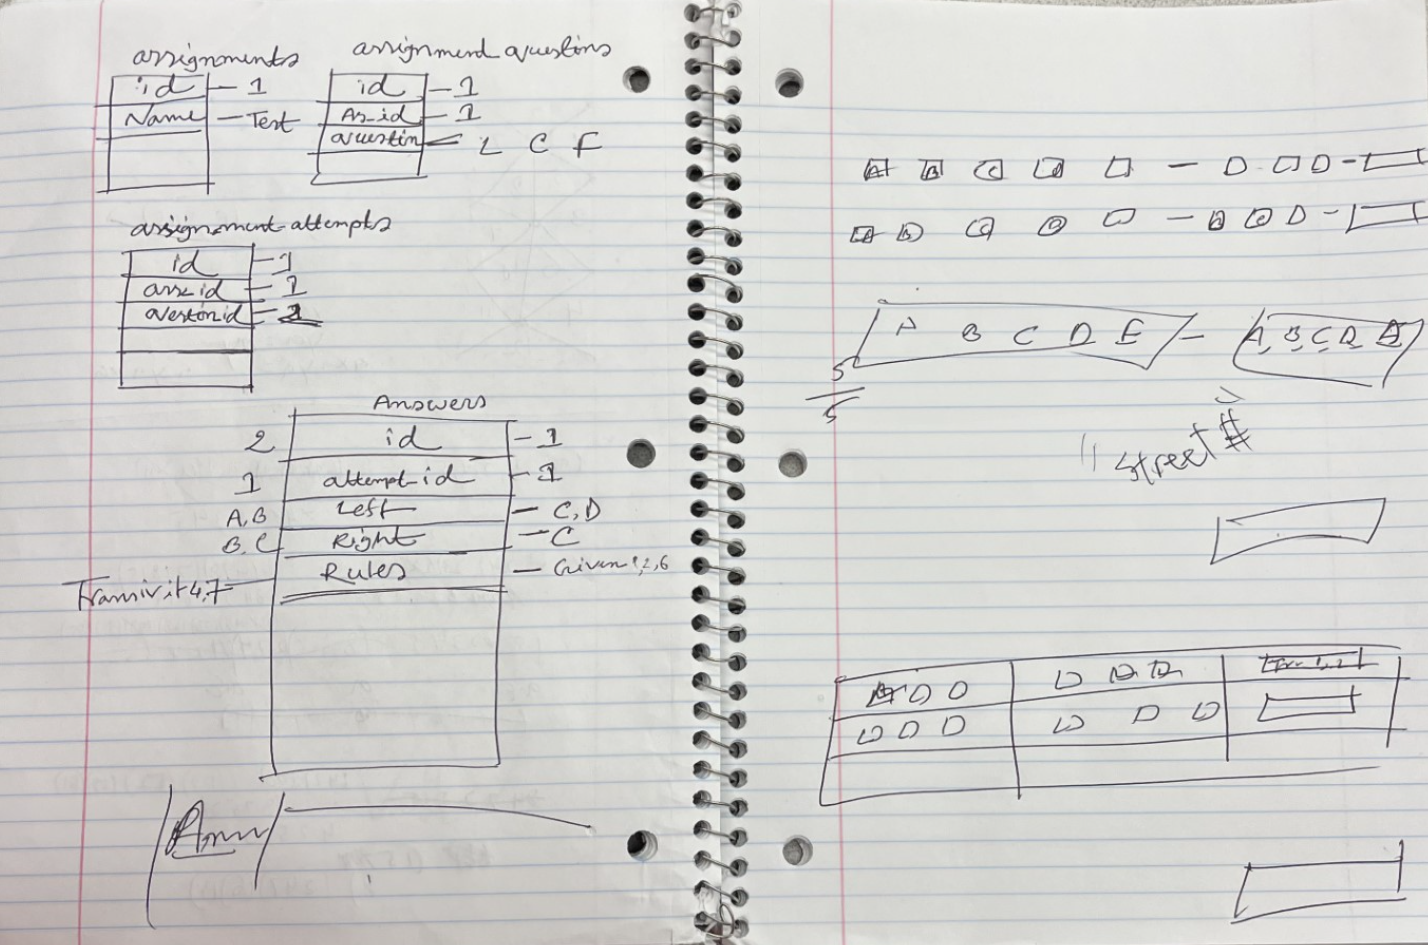 assignments
id - 1
Name - Test
assignment questins
id - 1
As-id - 1
questin - L C F
assignement-attempts
id - 1
ass-id - 1
questonid - 2
Answers
2 id - 1
1 attempt-id - 1
A,B Left - C,D
B,C Right - C
Rules - Given 1,2,6
4,7
A B C
A B C
A B C D E - A, B, C, D, E
5
5
" Street #